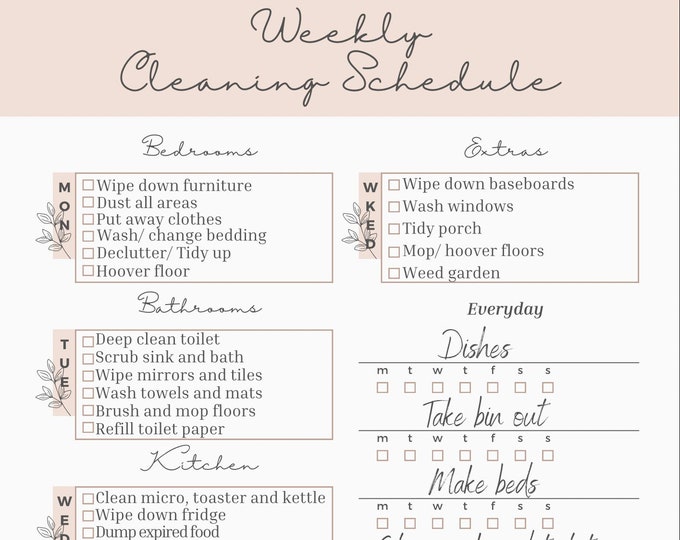 Weekly
Cleaning Schedule
Bedrooms
MON
Wipe down furniture
Dust all areas
Put away clothes
Wash/ change bedding
Declutter/ Tidy up
Hoover floor
Bathrooms
TUE
Deep clean toilet
Scrub sink and bath
Wipe mirrors and tiles
Wash towels and mats
Brush and mop floors
Refill toilet paper
Kitchen
WED
Clean micro, toaster and kettle
Wipe down fridge
Dump expired food
Extras
WKED
Wipe down baseboards
Wash windows
Tidy porch
Mop/ hoover floors
Weed garden
Everyday
Dishes
m t w t f s s
Take bin out
m t w t f s s
Make beds
m t w t f s s